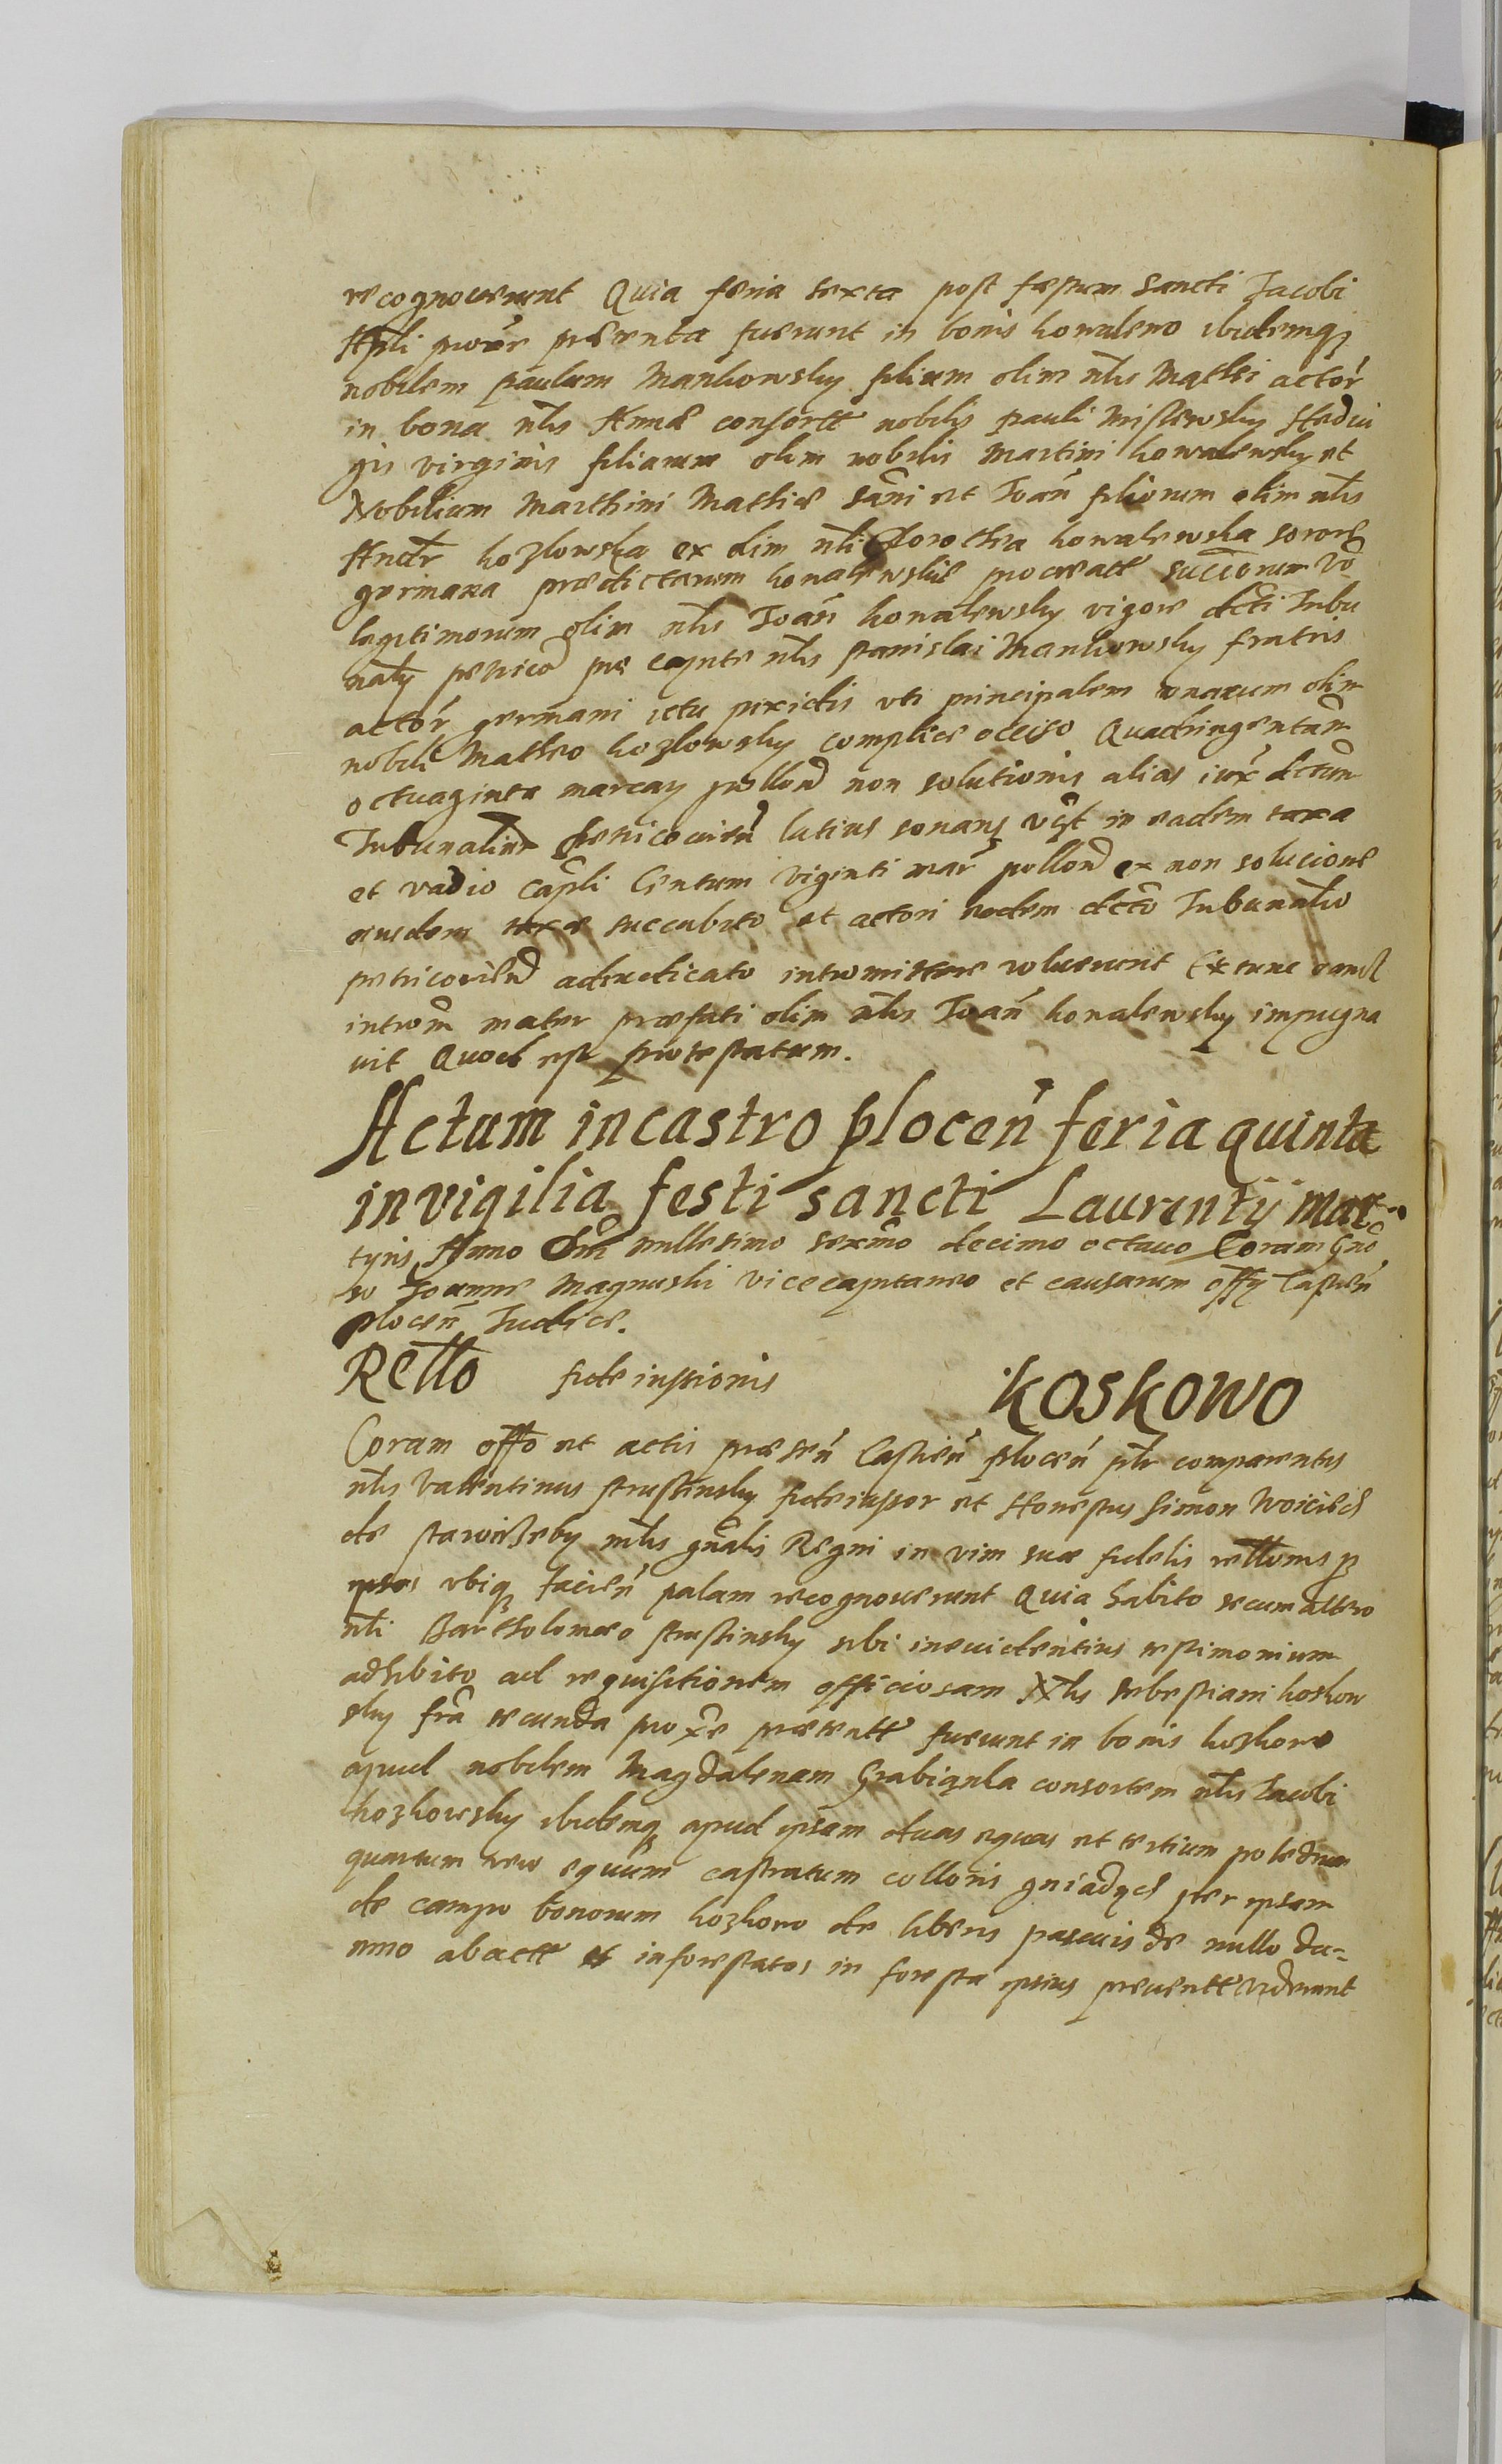 recognoverunt Quia feria sexta post festum Sancti Jacobi
Apli prox̃e praesenta fuerunt in bonis kowalewo ibidemq3
nobilem paulum Mankowsky filium olim nłis Mathei actor̃
in bona nłis Annae consortt nobilis pauli Misiewsky Hedui
gis virginis filiarum olim nobilis Martini kowalewsky et
Nobilium Marthini Mathiæ Sãni et Joan̄ filiorum olim nłis
Andr̃ kozlowska ex olim nłi Dorothea kowalewska sorore
germana prædictarum kowalewskie procreatt succ̃orum Vo
legitimorum olim nłis Joan̄ kowalewsky vigore dcti Tribu
nalÿ petrico᷑ pre capite nłis stanislai Mankowsky fratris
actor̃ germani ictu pixidis uti principalem
nobili Matheo kozlowsky complice occiso Quadringentarū
octuaginta marcarȝ pollon᷑ non solutionis alias iux̃ dctum
Tribunaliū petricouien̄ latius sonans in eadem taxa
et vadio cap̃li Centum viginti mar̃ pollon᷑ ex non solucione
eiusdem taxæ succubito et actori eodem dcto Tribunalio
petricovien᷑ adiudicato intromittere voluerunt Ex tunc eand᷑
introm̃ mater præfati olim nłis Joan̄ kowalewsky impugna
uit Quod est protestatum.
Actum in castro plocen̄ feria quinta
in vigilia festi sancti Laurentÿ Mar
tyris Anno Dñi millesimo sexmo decimo octauo Coram Gño
so Joanne Magnuski vicecapitaneo et causarum offÿ Castren̄
plocen̄ Judice.
Retto fideiussionis koskowo
Coram offo et actis præsen̄ Castren̄ plocen̄ plr̃ comparentes
nłis Valentinus strustinsky fideiussor et Honestus Simon Woiciech
de starozreby mlis gñalis Regni in vim suæ fidelis rettonis p
ipsos ubiq3 facien̄ palam recognouerunt Quia habito secum altero
nłi Bartholomeo strustinsky sibi in euidentius testimonium
adhibito ad requisitionem officiosam Nłis sebestiani koskow
sky fr̃a secunda prox̃e præteritt fuerunt in bonis koskowo
apud nobilem Magdalenam Grabiąnka consortem nłis Jacobi
koskowsky ibidemq3 apud ipsam duas equas et tertium poledrum
quartum vero equum castratum colloris gniadych per ipsam
de campo bonorum koskowo de liberis pascuis de nullo da-
mno abactt et inforestatos in foresta ipsius preuentt viderunt